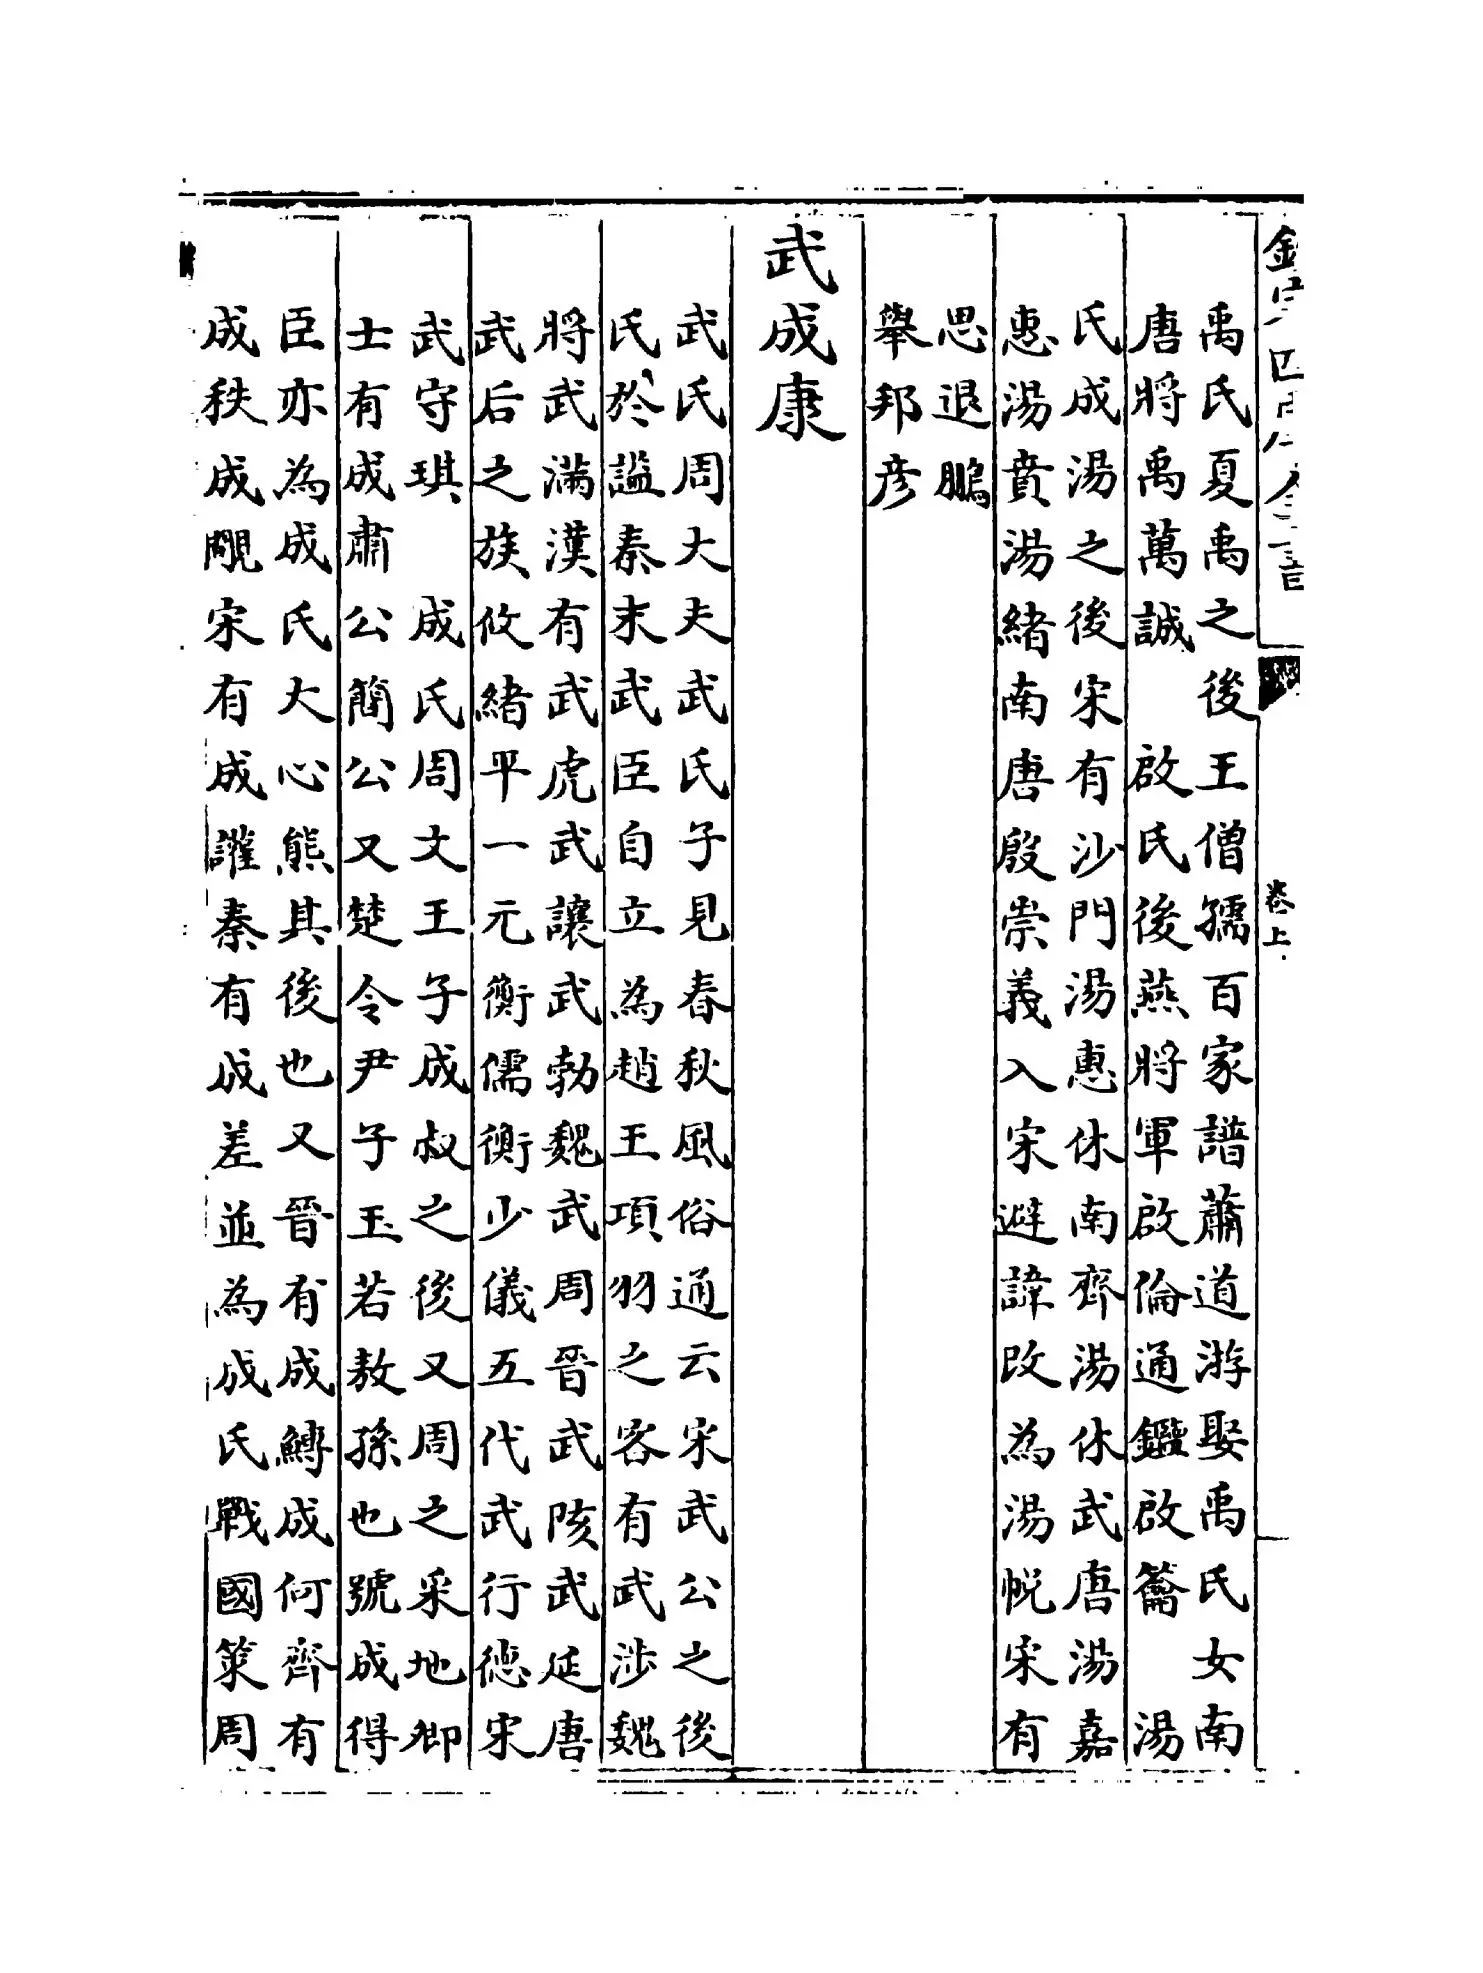 欽定四庫全書
卷上
禹氏夏禹之後王僧孺百家譜蕭道游娶禹氏女南
唐將禹萬誠　啟氏後燕將軍啟倫通鑑啟籥　湯
氏成湯之後宋有沙門湯惠休南齊湯休武唐湯嘉
惠湯賁湯緒南唐殷崇義入宋避諱改為湯帨宋有
思退鵬
舉邦彥
武成康
武氏周大夫武氏子見春秋風俗通云宋武公之後
氏於謚秦末武臣自立為趙王項羽之客有武涉魏
將武滿漢有武虎武讓武勃魏武周晉武陔武延唐
武后之族攸緒平一元衡儒衡少儀五代武行德宋
武守琪　成氏周文王子成叔之後又周之采地卿
士有成肅公簡公又楚令尹子玉若敖孫也號成得
臣亦為成氏大心熊其後也又晉有成鱄成何齊有
成秩成覵宋有成讙秦有成差並為成氏戰國策周